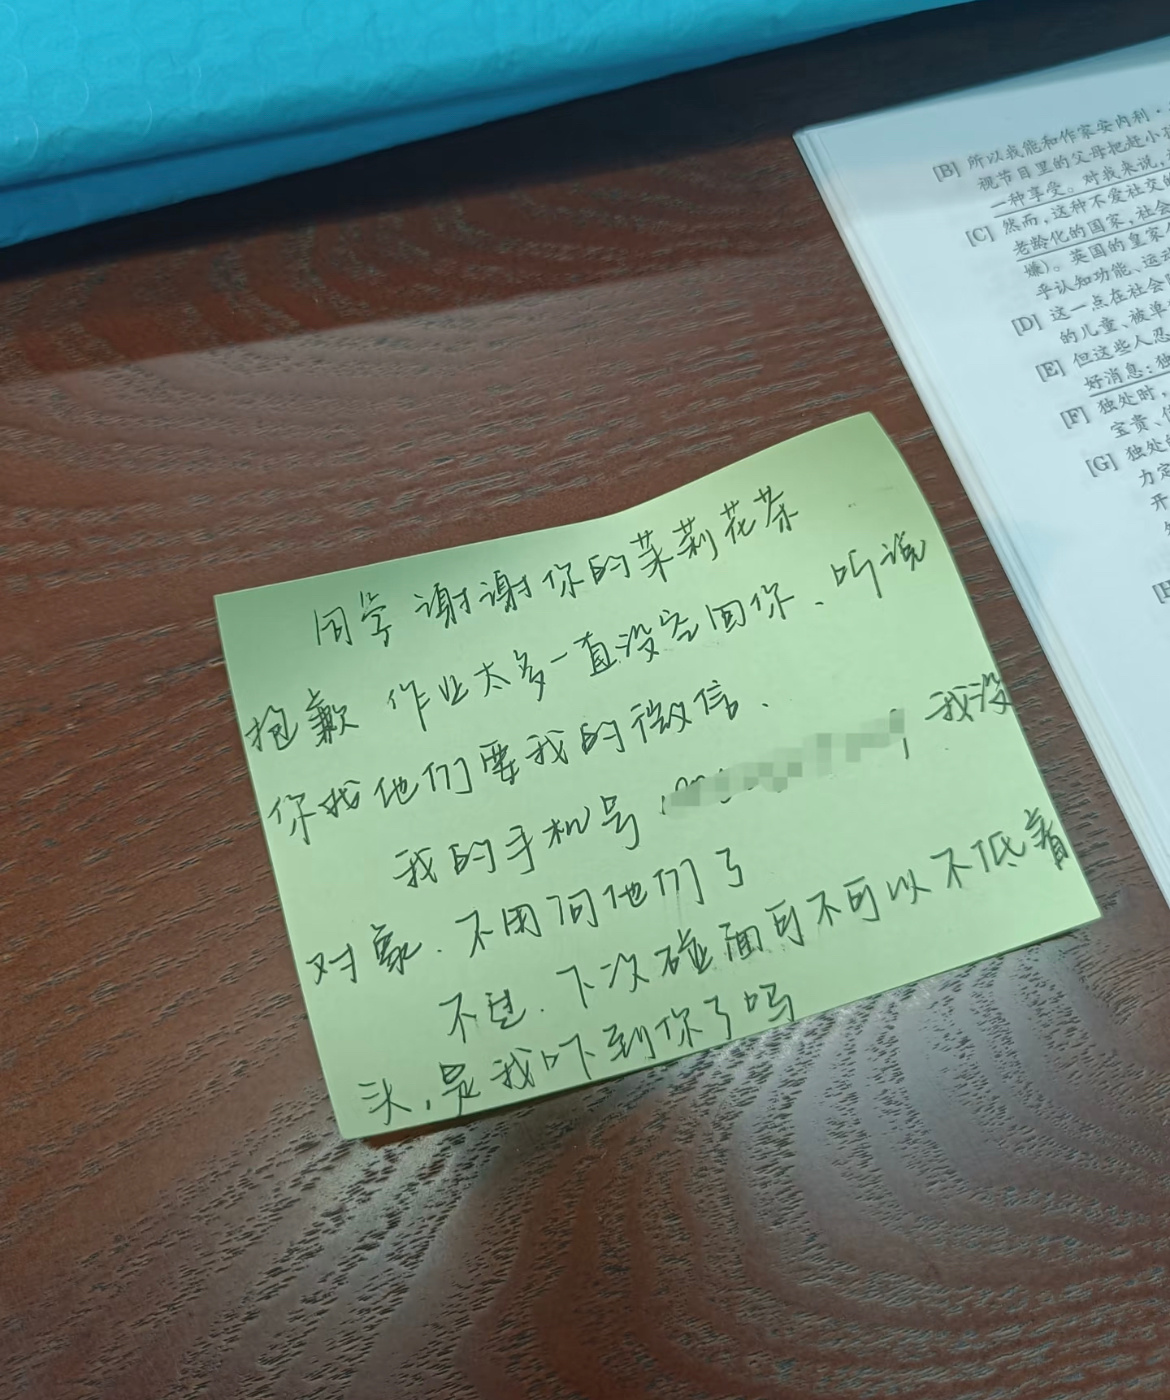 同学 谢谢你的茉莉花茶
抱歉 作业太多一直没空回你、听说
你找他们要我的微信、
我的手机号 我没
对象、不用问他们了
不过、下次碰面可不可以不低着
头，是我吓到你了吗
[B] 所以我能和作家安内利·
视节目里的父母把赶小
一种享受。对我来说，
[C] 然而，这种不爱社交的
老龄化的国家，社会
嫌）。英国的皇家
乎认知功能、运动
[D] 这一点在社会
的儿童、被单
[E] 但这些人忍
好消息：独
[F] 独处时，
宝贵、
[G] 独处
力
开